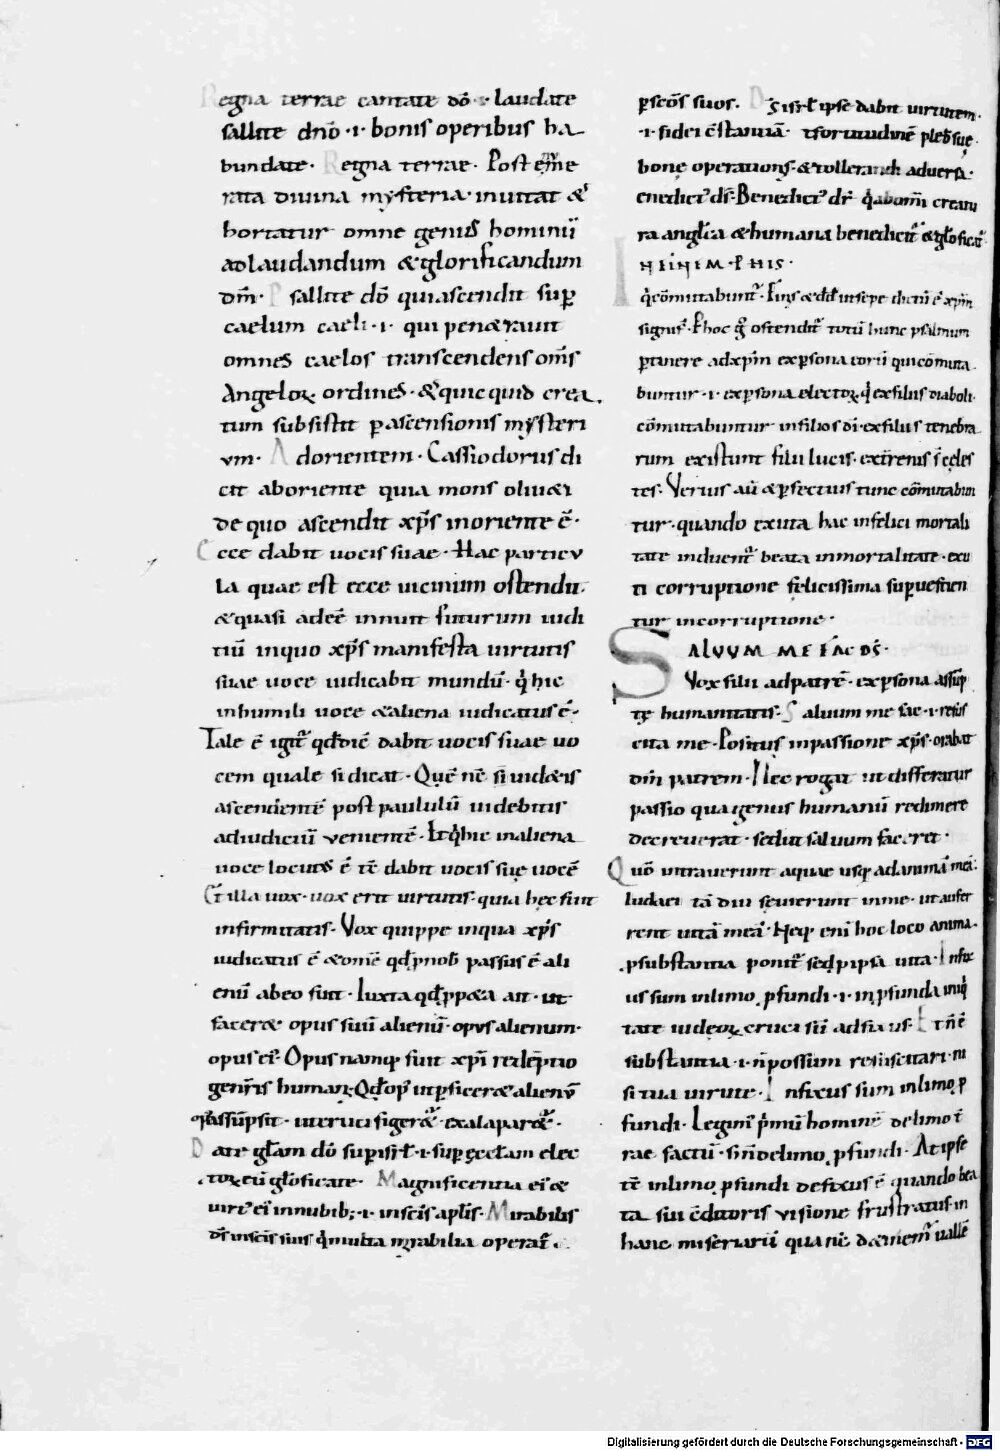 Regna terrae cantate dō · laudate
sallite dnō ·i· bonis operibus ha
bundate · Regna terrae · Post eme
rata divina mysteria · inuitat &
hortatur omne genus hominū
ad laudandum & glorificandum
dm̄ · Psallite dō qui ascendit sup
caelum caeli ·i· qui penetrauit
omnes caelos transcendens om̄s
Angeloꝝ ordines · & quicquid crea
tum subsistit p ascensionis mysteri
vm · Ad orientem · Cassiodorus di
cit ab oriente quia mons oliueti
de quo ascendit xp̄s in oriente ē ·
Ecce dabit uocis suae · Hac particu
la quae est ecce uicinum ostendit
& quasi adeē innuit futurum iudi
tiū in quo xp̄s manifesta uirtutis
suae uoce iudicabit mundū · q hic
in humili uoce & aliena iudicatus ē ·
Tale ē igit qd dic̄ dabit uocis suae uo
cem quale si dicat · Quē nē si uidetis
ascendentē post paululū uidebitis
ad iudiciū venientē · Et q hic in aliena
uoce locutus ē tē dabit uocis suę uocē
Cē illa uox · uox erit uirtutis · quia hęc sunt
infirmitatis · Vox quippe inqua xp̄s
iudicatus ē & om̄e qd p nob passus ē ali
enū ab eo sunt · Iuxta qd ppheta ait · ut
faceret opus suū alienū · opus alienum ·
opus ei · Opus namq sunt xp̄i redēptio
generis humani · Qd op ut pficeret alienū
assūpsit · ut
Date głam dō sup isrł ·i· sup ęccłam elec
toꝝ eū głoficate · Magnificentia ei &
uirt ei in nubib; ·i· in scīs aplis · Mirabilis
dś in scīs suis q multa mirabilia operat
p scōs suos · Ds isrł ipse dabit uirtutem ·
·i· fidei c̄stantiā · & fortitudinē plebi suę ·
bonę operationis · & tollerandi aduersa ·
enedict dś · Benedict dr q ab omi creatu
ra anglica & humana benedicit & głoficat
IN FINEM · P HIS ·
q cōmutabunt · Finis & dd ut sepe dictū ē xp̄m
signis · P hoc g ostendit totū hunc psalmum
ptinere ad xp̄m ex psona eorū qui cōmuta
buntur ·i· ex psona electoꝝ q ex filiis diaboli
cōmutabuntur in filios di · ex filiis tenebra
rum existunt filii lucis · ex t̄renis s̄ cęles
tes · Verius aū & pfectius tunc cōmutabun
tur · quando exuta hac infelici mortali
tate induent beata inmortalitate · exu
ti corruptione felicissima supuestien
tur incorruptione ·
SALVVM ME FAC DS ·
Vox filii ad patrē · ex psona assūp
tę humanitatis · Saluum me fac ·i· resus
cita me · Positus in passione xp̄s · orabat
dm̄ patrem · Nec rogat ut differatur
passio qua genus humanū redimere
decreuerat · sed ut saluum faceret ·
Quō intrauerunt aquae usq ad animā meā ·
Iudaei tā diu seuierunt in me · ut aufer
rent uitā meā · Neq eni hoc loco anima ·
p substantia ponit sed p ipsa uita · Infix
us sum in limo pfundi ·i· in pfunda iniq
tate iudęoꝝ cruci sū adfixus · Et n ē
substantia ·i· n possum resuscitari · ni
si tua uirtute · Infixus sum in limo p
fundi · Legim p̄mū hominē de limo t̄
rae factū · s n de limo pfundi · At ipse
tē in limo pfundi defixus ē quando bea
ta sui c̄ditoris visione frustratus · in
hanc miseriarū
Digitalisierung gefördert durch die Deutsche Forschungsgemeinschaft - DFG